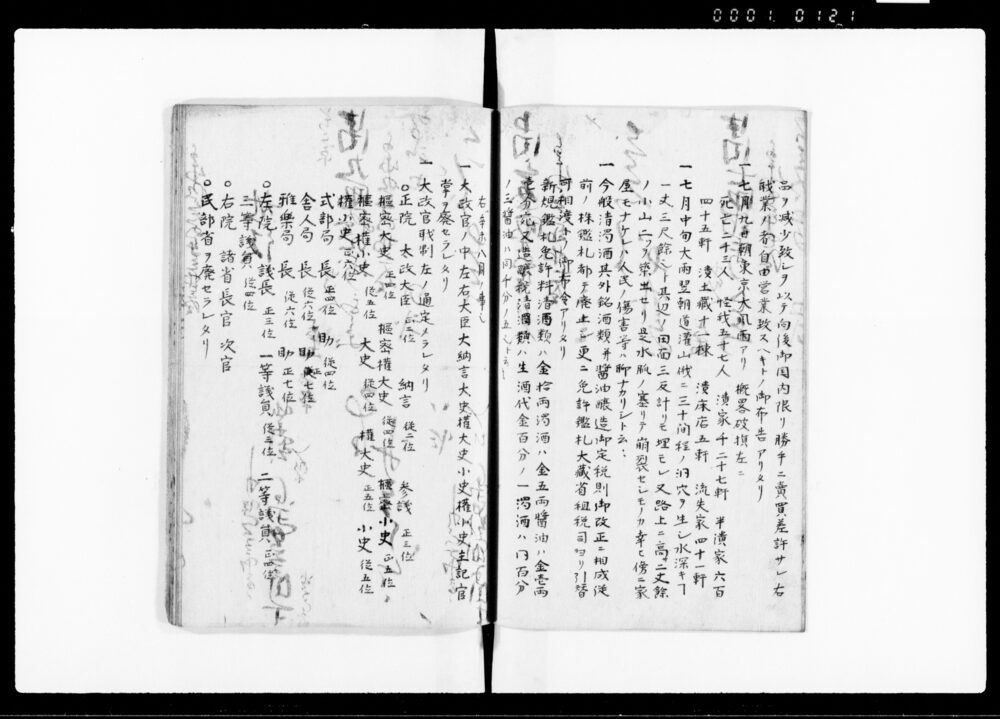 0001. 0121
品ヲ減少致シ候ヲ以テ向後御国内限リ勝手ニ賣買差許サレ右
職業ノ者自由営業致スヘキトノ御布告アリタリ
一七月九日朝東京大風雨アリ概畧破損左ニ
死亡二十三人 怪我五十七人 潰家千二十七軒 半潰家六百
四十五軒 潰土蔵十一棟 潰床店五軒 流失家四十一軒
一七月中旬大雨翌朝道灌山俄ニ三十間程ノ洞穴ヲ生シ水深キ
一丈三尺餘ニ 其辺ノ田面三反計リモ埋モレ又路上ニ高サ二丈餘
ノ小山二ツヲ築出セリ是水脈ノ塞リテ崩裂セシモノカ幸ヒ傍ニ家
屋モナケレハ人民ノ傷害等ハ聊ナカリシト云
一今般清濁酒其外銘酒類并醤油醸造御定税則御改正ニ相成従
前ノ株鑑札都テ廃止シ更ニ免許鑑札大蔵省租税司ヨリ引替
可相渡トノ御布令アリタリ
新規鑑札免許料清酒ハ金拾両濁酒ハ金五両醤油ハ金壱両
壱分宛又造醸税清酒類ハ生酒代金百分ノ一濁酒ハ同百分
ノ 醤油ハ同千分ノ五
右辛未八月
一大政官ノ中左右大臣大納言大史権大史小史権小史主記官
掌ヲ廃セラレタリ
一大政官職制左ノ通定メラレタリ
○正院 太政大臣 正二位 納言 従二位 参議 正三位
樞密大史 正四位 樞密権大史 従四位 樞密小史 正五位
樞密権小史 従五位 大史 従四位 権大史 正五位 小史 従五位
権小史 正六位
式部局 長 正四位 助 従四位
舎人局 長 従六位 助 正七位
雅樂局 長 従六位 助 正七位
○左院 議長 正三位 一等議員 従三位 二等議員 正四位
三等議員 従四位
○右院 諸省長官 次官
○民部省ヲ廃セラレタリ